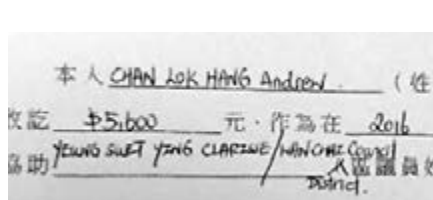 本人 CHAN LOK HANG Andrew (姓
收訖 $5,600 元，作為在 2016
協助 YEUNG SUET YING CLARISSE / WANCHAI Council 區議員
District.